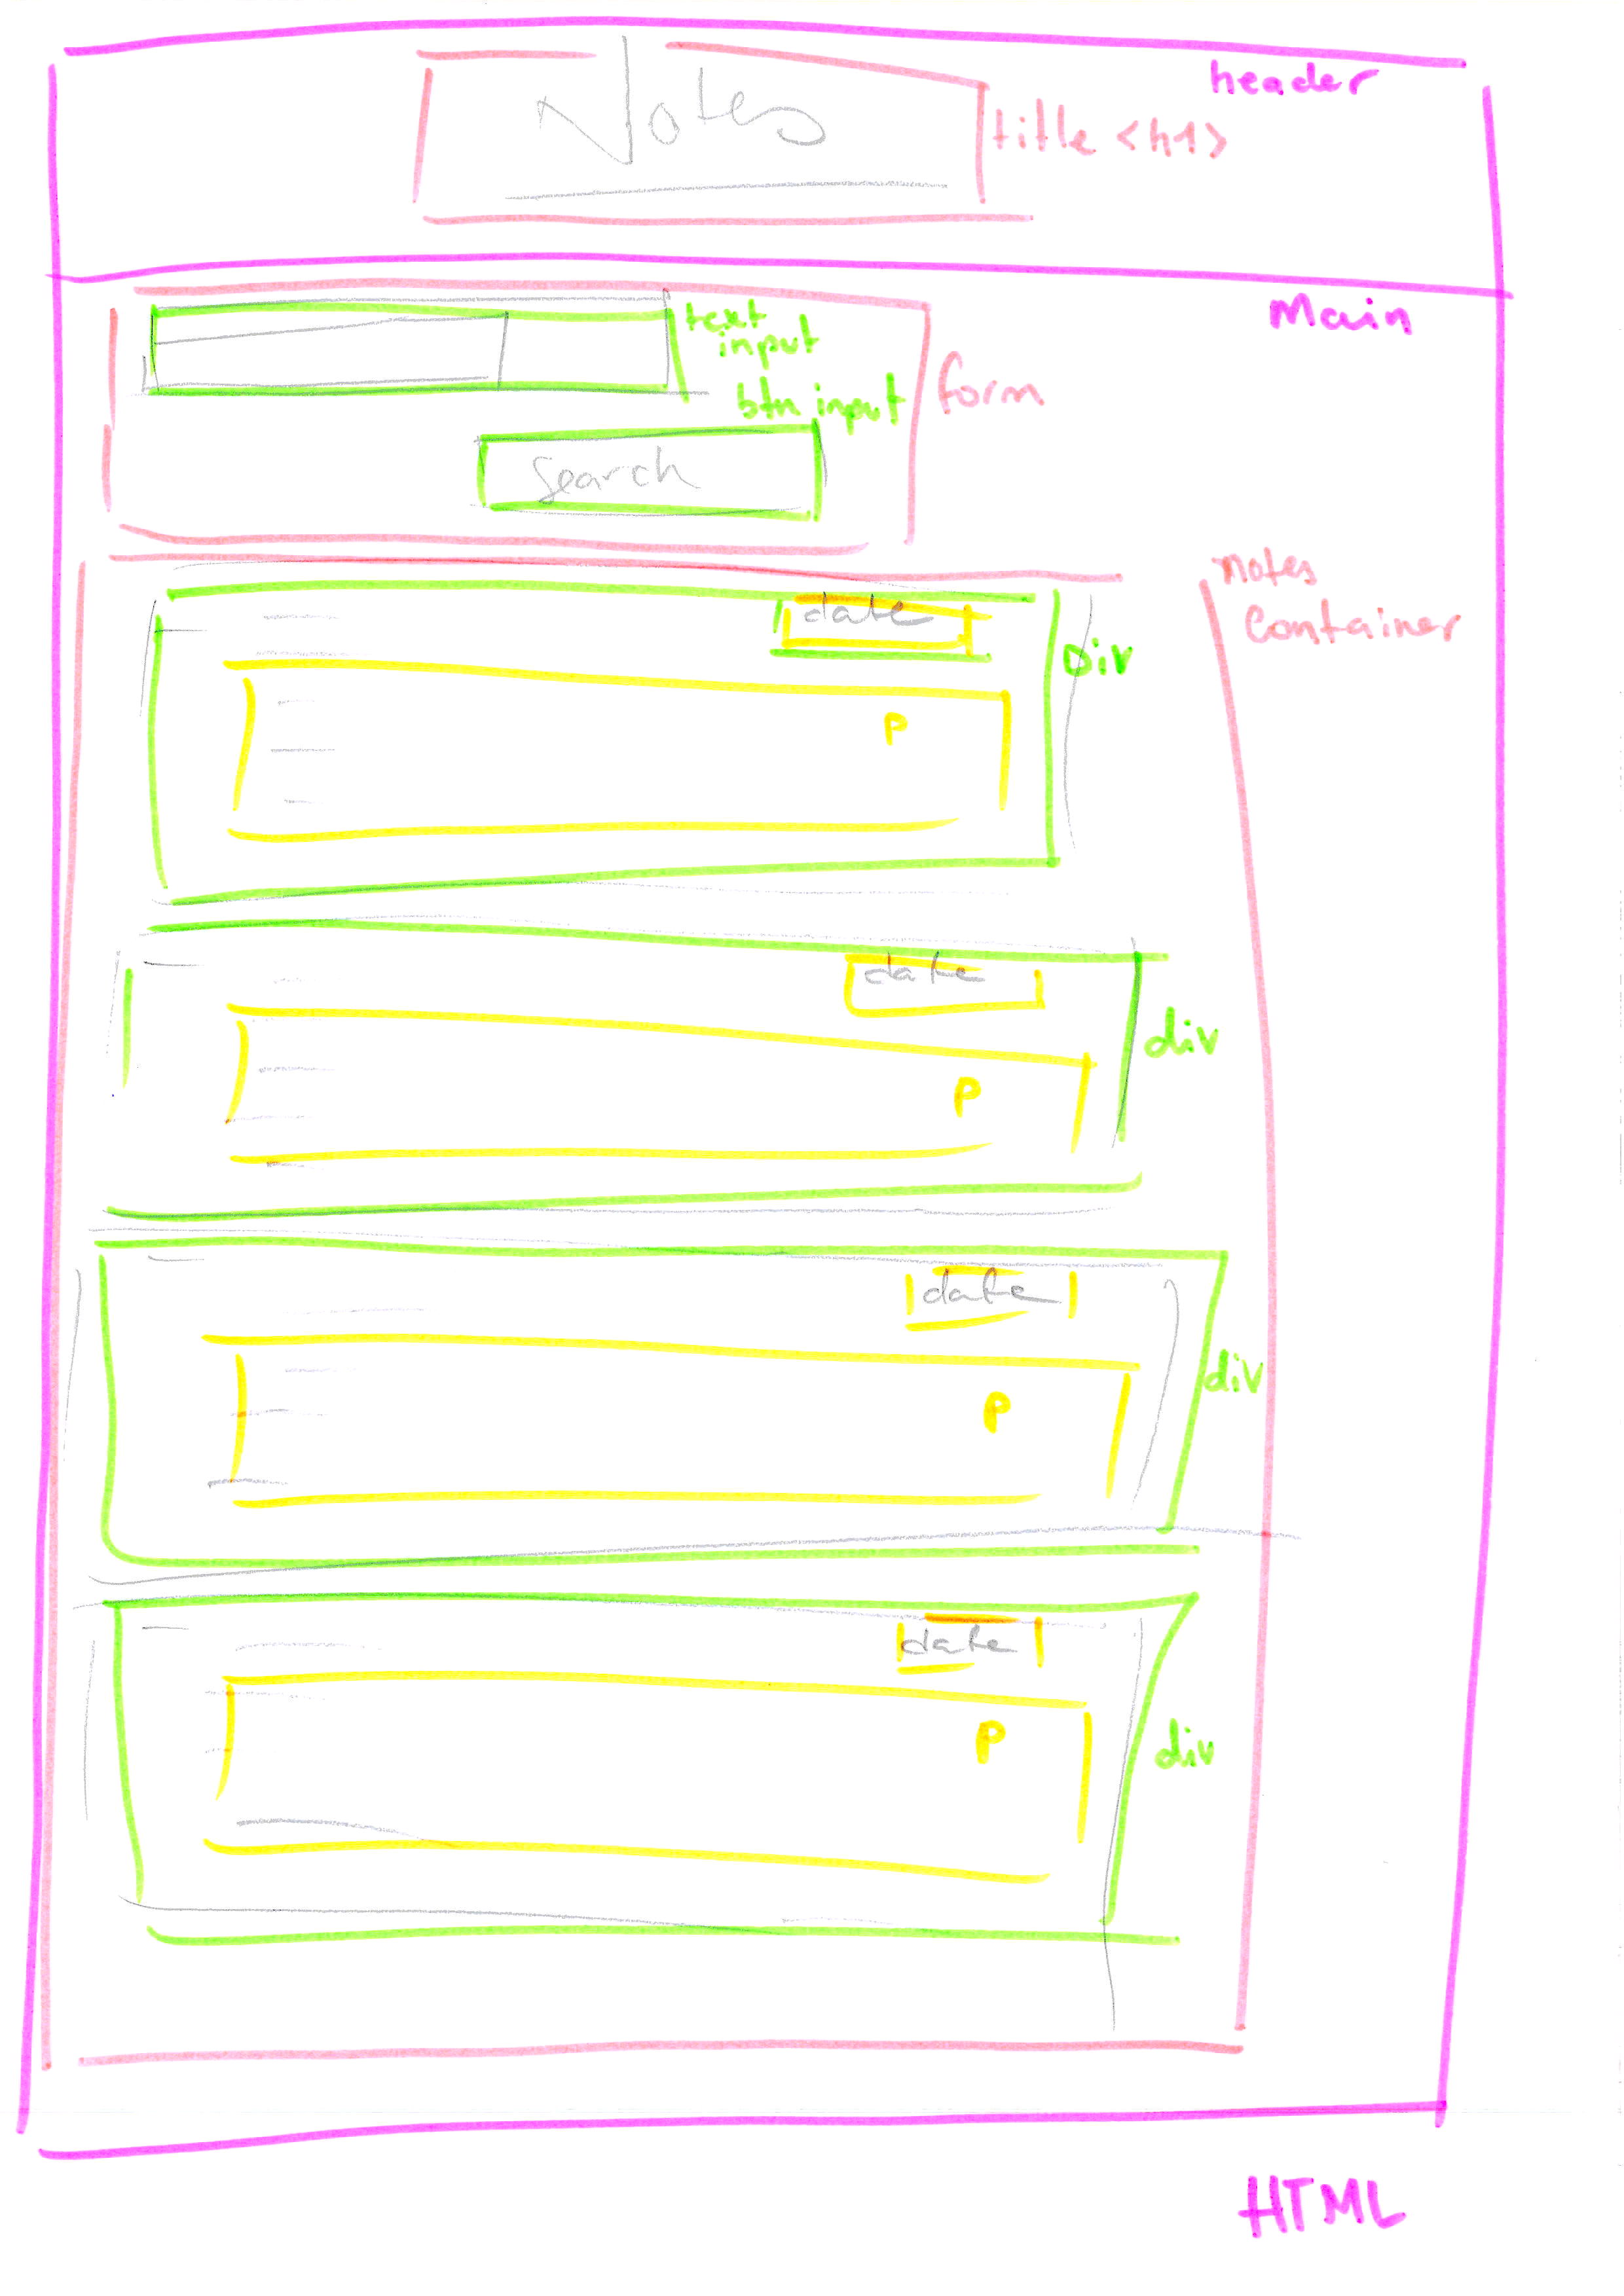 header
Notes
title <h1>
Main
text
input
btn input
form
Search
notes
Container
date
Div
P
date
div
P
date
div
P
date
P
div
HTML